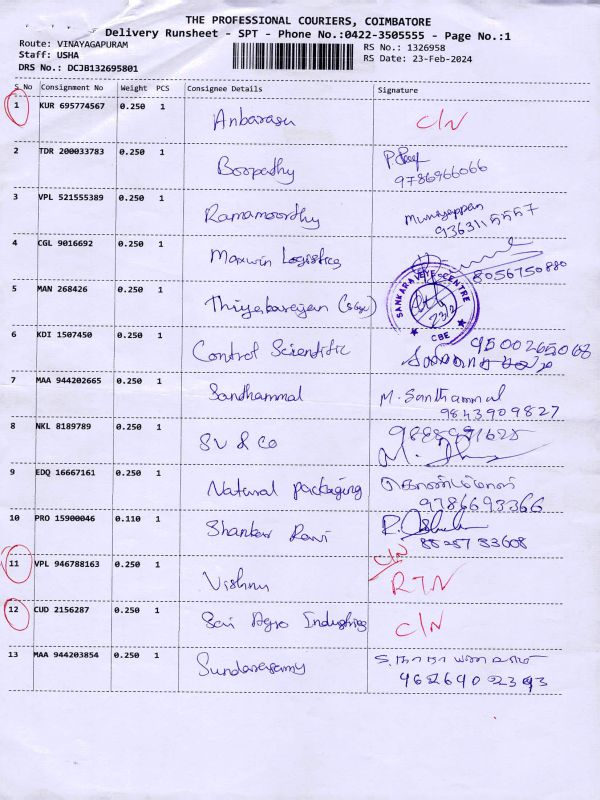 THE PROFESSIONAL COURIERS, COIMBATORE
Delivery Runsheet - SPT - Phone No.:0422-3505555 - Page No.:1
Route: VINAYAGAPURAM
Staff: USHA
DRS No.: DCJB132695801
RS No.: 1326958
RS Date: 23-Feb-2024
S.No Consignment No Weight PCS Consignee Details Signature
1 KUR 695774567 0.250 1 Anbarasu C/N
2 TDR 200033783 0.250 1 Boopathy
9786966066
3 VPL 521555389 0.250 1 Ramamoorthy Muniyappan
9363115557
4 CGL 9016692 0.250 1 Maxwin Logistics
8056750880
5 MAN 268426 0.250 1 Thiyabarajan
SANKARA EYE CENTRE
23/2
CBE
6 KDI 1507450 0.250 1 Control Scientific 9500265068
7 MAA 944202665 0.250 1 Santhammal M. Santhammal
9843909827
8 NKL 8189789 0.250 1 SV & Co
9 EDQ 16667161 0.250 1 Natural packaging
9786693366
10 PRO 15900046 0.110 1 Shanker Ravi
11 VPL 946788163 0.250 1 Vishnu C/N
RTN
12 CUD 2156287 0.250 1 Sai Agro Industries C/N
13 MAA 944203854 0.250 1 Sundarasamy